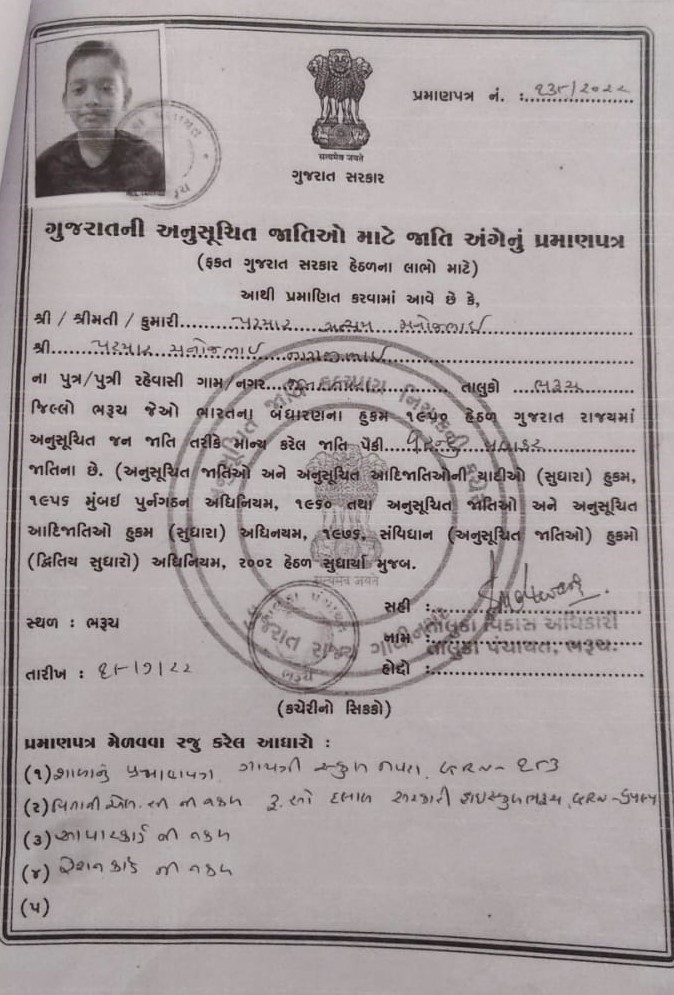 પ્રમાણપત્ર નં. :
सत्यमेव जयते
ગુજરાત સરકાર
ગુજરાતની અનુસૂચિત જાતિઓ માટે જાતિ અંગેનું પ્રમાણપત્ર
(ફકત ગુજરાત સરકાર હેઠળના લાભો માટે)
આથી પ્રમાણિત કરવામાં આવે છે કે,
શ્રી / શ્રીમતી / કુમારી પરમાર મનોજભાઈ
શ્રી પરમાર મનોજભાઈ
ના પુત્ર/પુત્રી રહેવાસી ગામ/નગર તાલુકો ભરૂચ
જિલ્લો ભરૂચ જેઓ ભારતના બંધારણના હુકમ ૧૯૫૦ હેઠળ ગુજરાત રાજયમાં
અનુસૂચિત જન જાતિ તરીકે માન્ય કરેલ જાતિ પૈકી
જાતિના છે. (અનુસૂચિત જાતિઓ અને અનુસૂચિત આદિજાતિઓની યાદીઓ (સુધારા) હુકમ,
૧૯૫૬ મુંબઈ પુર્નગઠન અધિનિયમ, ૧૯૬૦ તથા અનુસૂચિત જાતિઓ અને અનુસૂચિત
આદિજાતિઓ હુકમ (સુધારા) અધિનયમ, ૧૯૭૬, સંવિધાન (અનુસૂચિત જાતિઓ) હુકમો
(દ્વિતિય સુધારો) અધિનિયમ, ૨૦૦૨ હેઠળ સુધાર્યા મુજબ.
सत्यमेव जयते
સહી :
સ્થળ : ભરૂચ
નામ :
તાલુકા વિકાસ અધિકારી
તાલુકા પંચાયત, ભરૂચ.
તારીખ :
હોદ્દો :
(કચેરીનો સિક્કો)
પ્રમાણપત્ર મેળવવા રજુ કરેલ આધારો :
(૧) શાળાનું પ્રમાણપત્ર, ગાયત્રી સ્કુલ
(૨) પિતાની એલ.સી ની નકલ
(૩) આધારકાર્ડ ની નકલ
(૪) રેશનકાર્ડ ની નકલ
(૫)